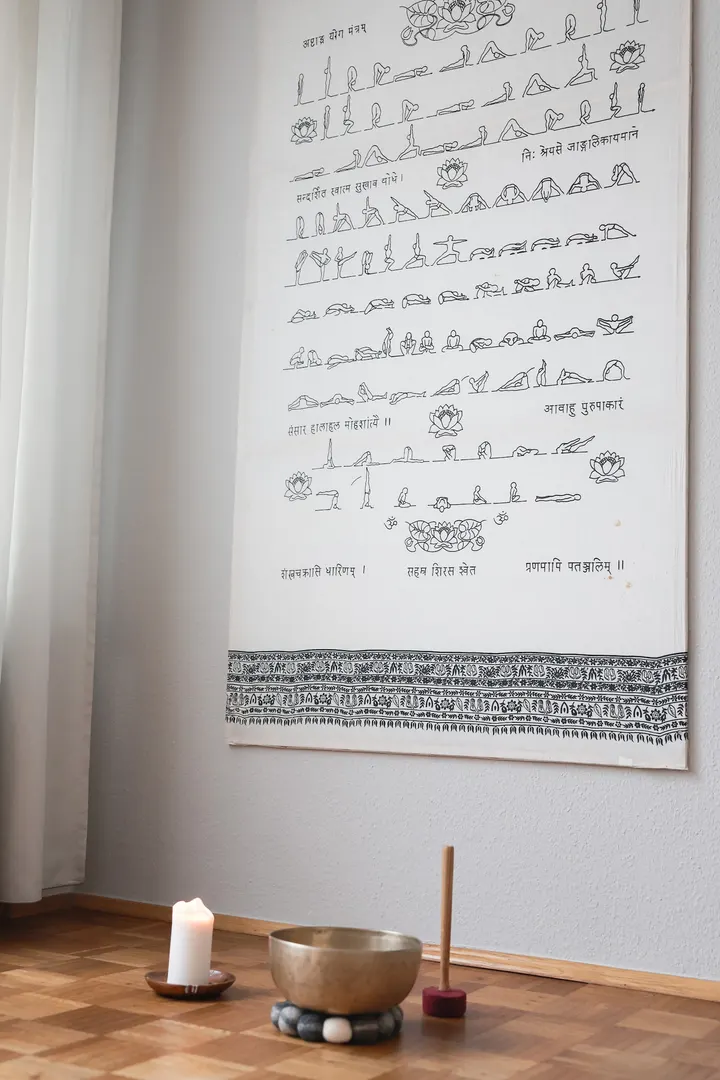 अष्टाङ्ग योग मंत्रम्
निः श्रेयसे जाङ्गलिकायमाने
सन्दर्शित स्वात्म सुखाव बोधे ।
आबाहु पुरुषाकारं
संसार हालाहल मोहशांत्यै ॥
ॐ ॐ
शंखचक्रासि धारिणम् । सहस्र शिरस श्वेत प्रणमामि पतञ्जलिम् ॥